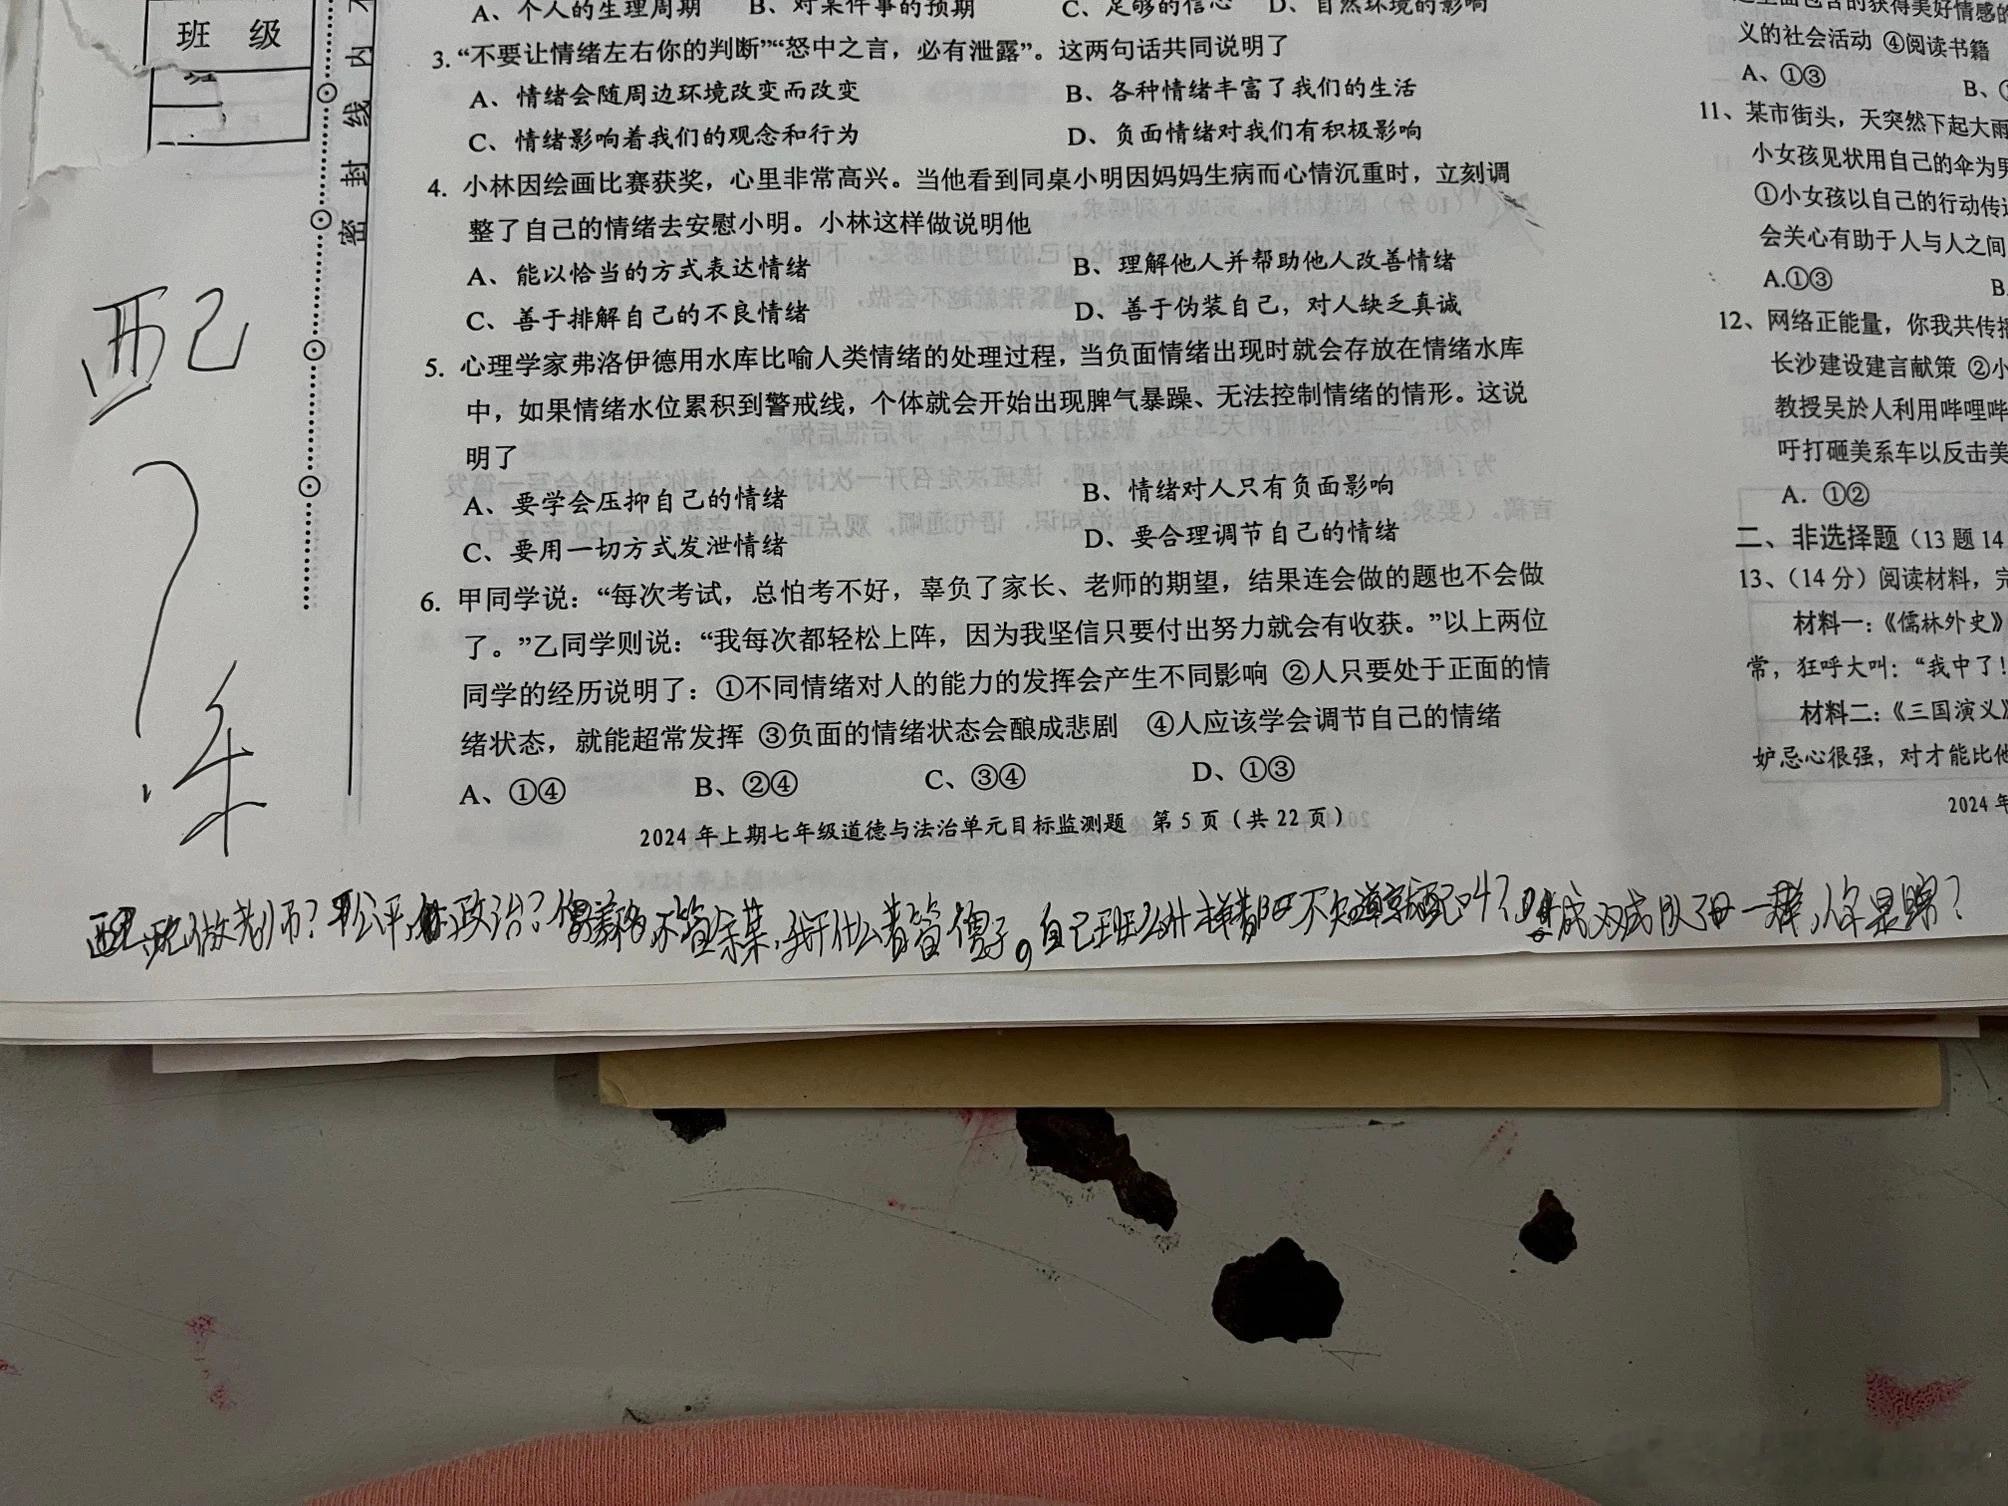 班 级
密 封 线 内 不
A、个人的生理周期 B、对某件事的预期 C、足够的信心 D、自然环境的影响
3. “不要让情绪左右你的判断”“怒中之言，必有泄露”。这两句话共同说明了
A、情绪会随周边环境改变而改变 B、各种情绪丰富了我们的生活
C、情绪影响着我们的观念和行为 D、负面情绪对我们有积极影响
4. 小林因绘画比赛获奖，心里非常高兴。当他看到同桌小明因妈妈生病而心情沉重时，立刻调
整了自己的情绪去安慰小明。小林这样做说明他
A、能以恰当的方式表达情绪 B、理解他人并帮助他人改善情绪
C、善于排解自己的不良情绪 D、善于伪装自己，对人缺乏真诚
5. 心理学家弗洛伊德用水库比喻人类情绪的处理过程，当负面情绪出现时就会存放在情绪水库
中，如果情绪水位累积到警戒线，个体就会开始出现脾气暴躁、无法控制情绪的情形。这说
明了
A、要学会压抑自己的情绪 B、情绪对人只有负面影响
C、要用一切方式发泄情绪 D、要合理调节自己的情绪
6. 甲同学说：“每次考试，总怕考不好，辜负了家长、老师的期望，结果连会做的题也不会做
了。”乙同学则说：“我每次都轻松上阵，因为我坚信只要付出努力就会有收获。”以上两位
同学的经历说明了：①不同情绪对人的能力的发挥会产生不同影响 ②人只要处于正面的情
绪状态，就能超常发挥 ③负面的情绪状态会酿成悲剧 ④人应该学会调节自己的情绪
A、①④ B、②④ C、③④ D、①③
2024 年上期七年级道德与法治单元目标监测题 第 5 页（共 22 页）
配
做老师？公平 政治？
义的社会活动 ④阅读书籍
A、①③ B、
11、某市街头，天突然下起大雨
小女孩见状用自己的伞为男
①小女孩以自己的行动传递
会关心有助于人与人之间
A.①③ B.
12、网络正能量，你我共传播
长沙建设建言献策 ②小
教授吴於人利用哔哩哔
吁打砸美系车以反击美
A. ①②
二、非选择题（13 题 14
13、（14 分）阅读材料，完
材料一：《儒林外史》
常，狂呼大叫：“我中了！
材料二：《三国演义》
妒忌心很强，对才能比他
2024 年